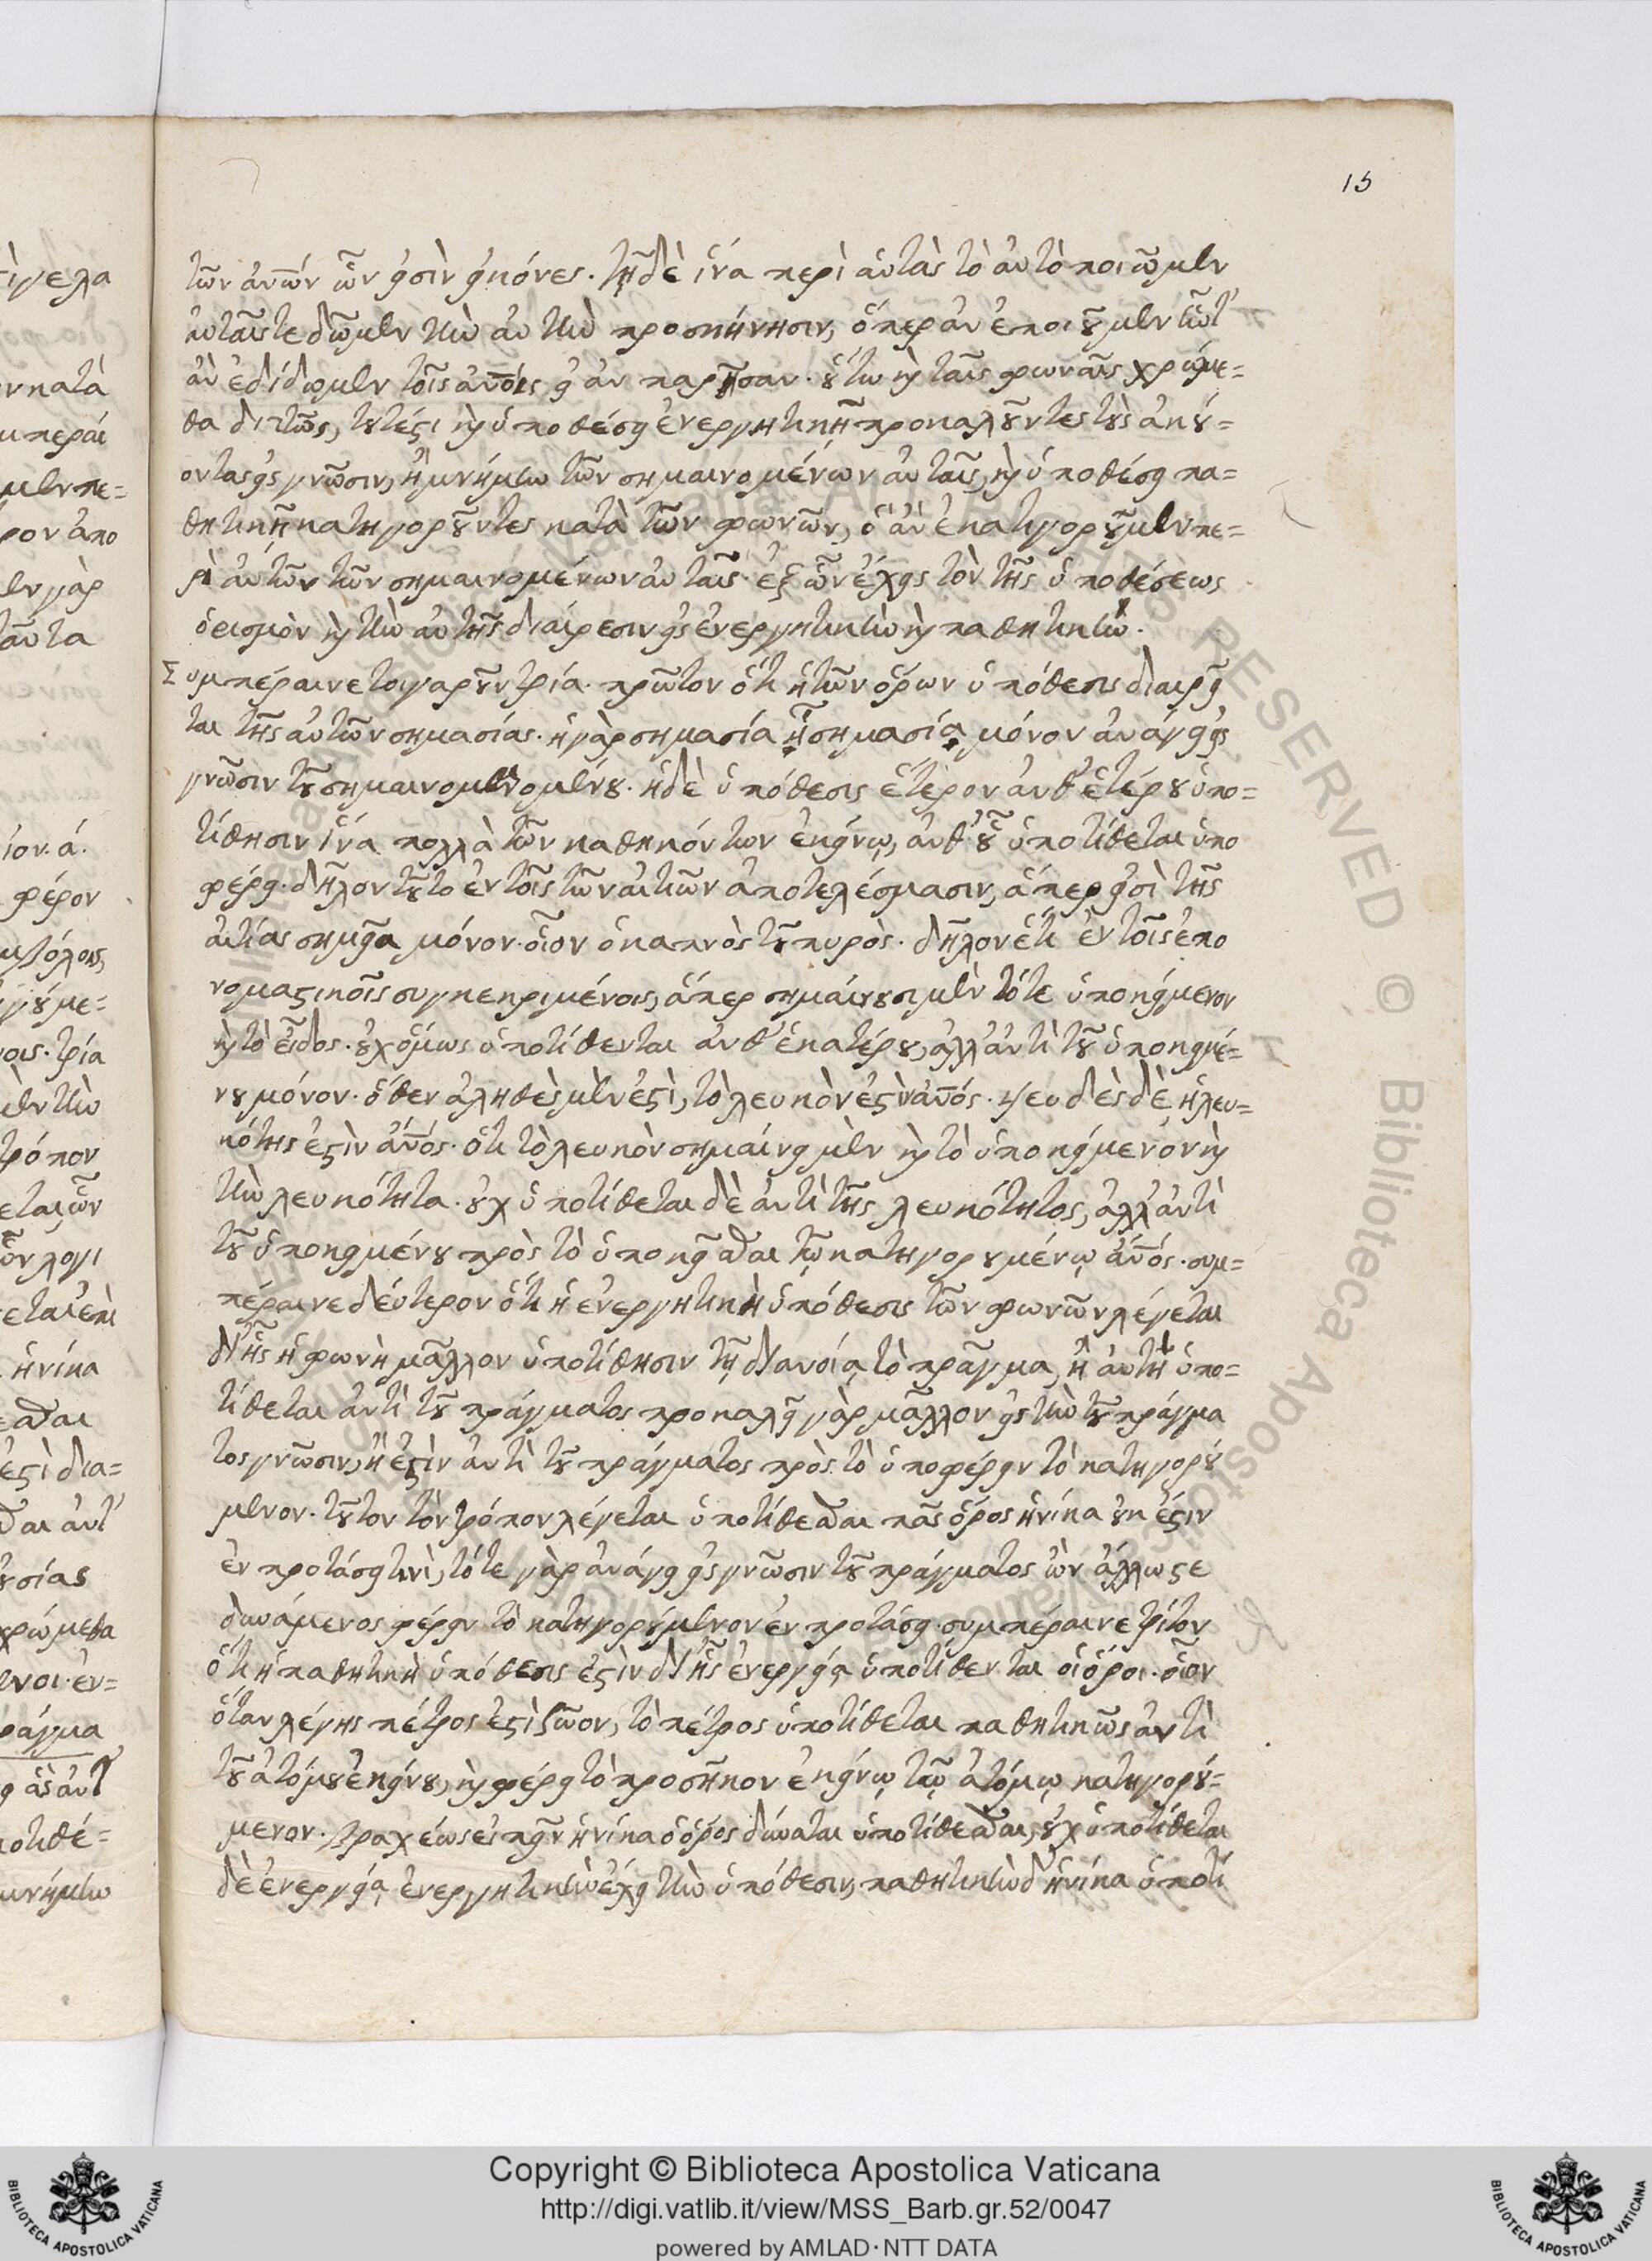 15
τῶν ἀν͞ων ὧν εἰσὶν εἰκόνες. τῇδὲ ἵνα περὶ αὐτὰς τὸ αὐτὸ ποιῶμεν
αὐταῖς τε δῶμεν τὴν αὐτὴν προσκύνησιν, ὅπερ ἂν ἐποιοῦμεν
ἂν ἐδίδομεν τοῖς ἀν͞οις εἰ ἂν παρῆσαν. οὕτω καὶ ταῖς φωναῖς χρώμε=
θα διττῶς, τουτέστι καὶ ὑποθέσει ἐνεργητικῇ προκαλοῦντες τοὺς ἀκού=
οντας εἰς γνῶσιν, ἢ μνήμην τῶν σημαινομένων αὐταῖς, καὶ ὑποθέσει πα=
θητικῇ κατηγοροῦντες κατὰ τῶν φωνῶν, ὃ ἂν ἐκατηγοροῦμεν πε=
ρὶ αὐτῶν τῶν σημαινομένων αὐταῖς. ἐξ ὧν ἔχεις τὸν τῆς ὑποθέσεως
ὁρισμὸν καὶ τὴν αὐτῆς διαίρεσιν εἰς ἐνεργητικὴν καὶ παθητικήν.
Συμπέραινε τοιγαροῦν τρία. πρῶτον ὅτι ἡ τῶν ὅρων ὑπόθεσις διαιρεῖ
ται τῆς αὐτῶν σημασίας. ἡ γὰρ σημασία ᾗ σημασία μόνον ἀνάγει εἰς
γνῶσιν τοῦ σημαινομένου. ἡ δὲ ὑπόθεσις ἕτερον ἀνθ' ἑτέρου ὑπο=
τίθησιν ἵνα πολλὰ τῶν καθηκόντων ἐκείνῳ, ἀνθ' οὗ ὑποτίθεται ὑπο
φέρει. δῆλον τοῦτο ἐν τοῖς τῶν αἰτιῶν ἀποτελέσμασιν, ἅπερ εἰσὶ τῆς
αἰτίας σημεῖα μόνον. οἷον ὁ καπνὸς τοῦ πυρὸς. δῆλον ἔτι ἐν τοῖς ἐπο
νομαστικοῖς συγκεκριμένοις, ἅπερ σημαίνουσι μὲν τότε ὑποκείμενον
καὶ τὸ εἶδος. οὐχ ὅμως ὑποτίθενται ἀνθ' ἑκατέρου, ἀλλ' ἀντὶ τοῦ ὑποκειμέ=
νου μόνον. ὅθεν ἀληθὲς μὲν ἐστὶ, τὸ λευκὸν ἐστὶν ἀν͞ος. ψευδὲς δὲ, ἡ λευ=
κότης ἐστὶν ἀν͞ος. ὅτι τὸ λευκὸν σημαίνει μὲν καὶ τὸ ὑποκείμενον καὶ
τὴν λευκότητα. οὐχ ὑποτίθεται δὲ ἀντὶ τῆς λευκότητος, ἀλλ' ἀντὶ
τοῦ ὑποκειμένου πρὸς τὸ ὑποκεῖσθαι τῷ κατηγορουμένῳ ἀν͞ος. συμ=
πέραινε δεύτερον ὅτι ἡ ἐνεργητικὴ ὑπόθεσις τῶν φωνῶν λέγεται
δι' ἧς ἡ φωνὴ μᾶλλον ὑποτίθησιν τῇ διανοίᾳ τὸ πρᾶγμα, ἢ αὐτὴ ὑπο=
τίθεται ἀντὶ τοῦ πράγματος προκαλεῖ γὰρ μᾶλλον εἰς τὴν τοῦ πράγμα
τος γνῶσιν, ἢ ἐστὶν ἀντὶ τοῦ πράγματος πρὸς τὸ ὑποφέρειν τὸ κατηγορού
μενον. τοῦτον τὸν τρόπον λέγεται ὑποτίθεσθαι πᾶς ὅρος ἡνίκα οὐκ ἔστιν
ἐν προτάσει τινὶ, τότε γὰρ ἀνάγει εἰς γνῶσιν τοῦ πράγματος ὢν ἄλλωστε
δυνάμενος φέρειν τὸ κατηγορούμενον ἐν προτάσει. συμπέραινε τρίτον
ὅτι ἡ παθητικὴ ὑπόθεσις ἐστὶν δι' ἧς ἐνεργείᾳ ὑποτίθενται οἱ ὅροι. οἷον
ὅταν λέγῃς πέτρος ἐστὶ ζῶον, τὸ πέτρος ὑποτίθεται παθητικῶς ἀντὶ
τοῦ ἀτόμου ἐκείνου, καὶ φέρει τὸ προσῆκον ἐκείνῳ τῷ ἀτόμῳ κατηγορού=
μενον. βραχέως εἰπεῖν ἡνίκα ὁ ὅρος δύναται ὑποτίθεσθαι, οὐχ ὑποτίθεται
δὲ ἐνεργείᾳ, ἐνεργητικὴν ἔχει τὴν ὑπόθεσιν, παθητικὴν δ' ἡνίκα ὑποτί
Copyright © Biblioteca Apostolica Vaticana
http://digi.vatlib.it/view/MSS_Barb.gr.52/0047
powered by AMLAD·NTT DATA